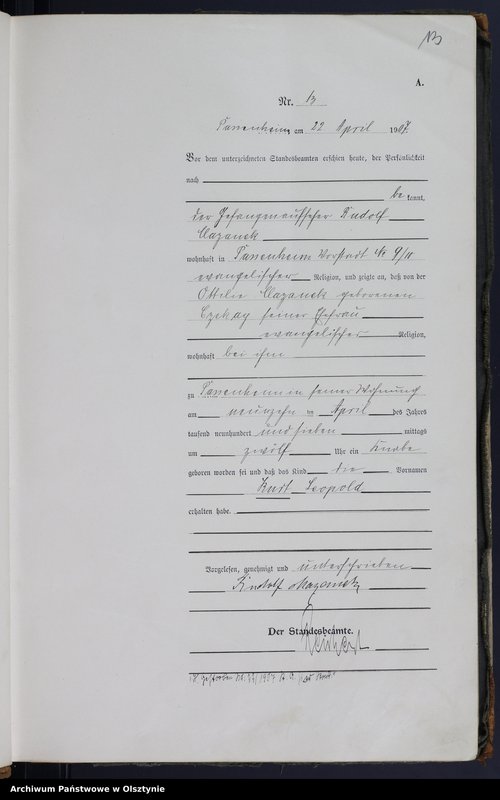 13
A.
Nr. 13
Passenheim am 22 April 1907.
Vor dem unterzeichneten Standesbeamten erschien heute, der Persönlichkeit
nach
bekannt,
der Gefangenaufseher Rudolf
Mazanek
wohnhaft in Passenheim Vorstadt No 9/10
evangelischer Religion, und zeigte an, daß von der
Ottilie Mazanek geborenen
seiner Ehefrau
evangelischer Religion,
wohnhaft bei ihm
zu Passenheim in seiner Wohnung
am neunzehn ten April des Jahres
tausend neunhundert und sieben mittags
um zwölf Uhr ein Knabe
geboren worden sei und daß das Kind die Vornamen
Kurt Leopold
erhalten habe.
Vorgelesen, genehmigt und unterschrieben
Rudolf Mazanek
Der Standesbeamte.
Archiwum Państwowe w Olsztynie